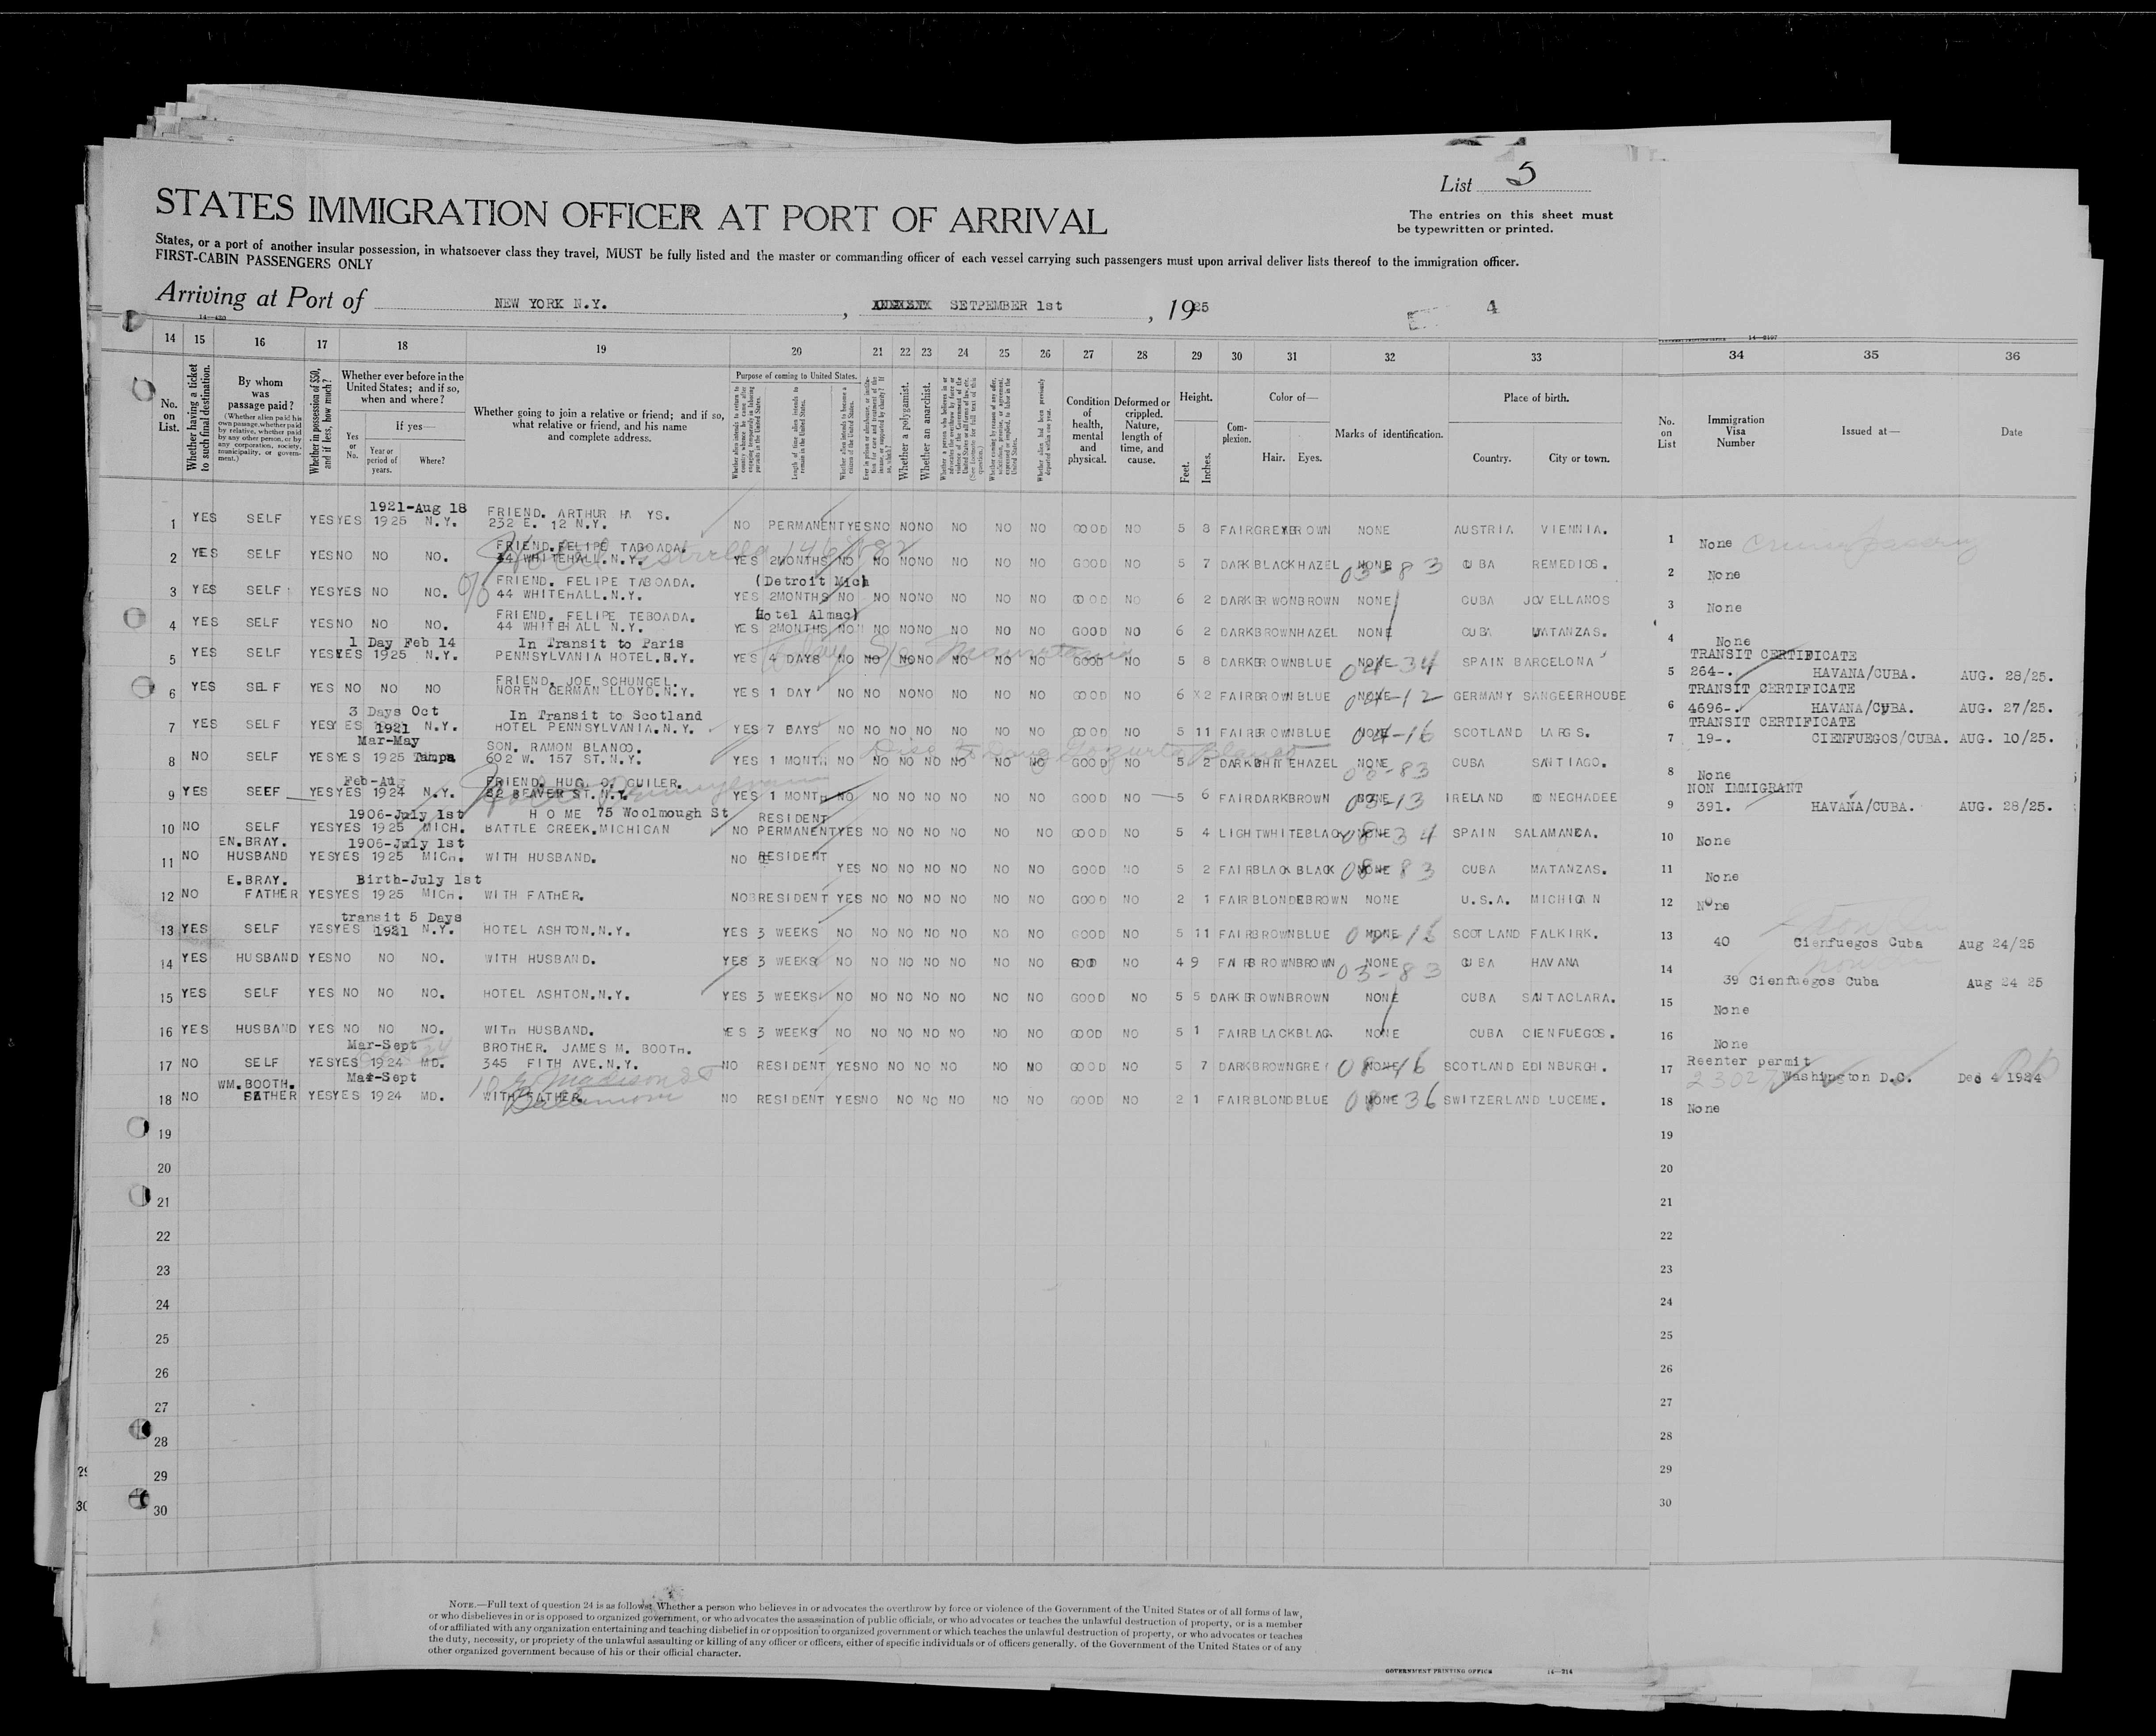 List 5
STATES IMMIGRATION OFFICER AT PORT OF ARRIVAL
The entries on this sheet must
be typewritten or printed.
States, or a port of another insular possession, in whatsoever class they travel, MUST be fully listed and the master or commanding officer of each vessel carrying such passengers must upon arrival deliver lists thereof to the immigration officer.
FIRST-CABIN PASSENGERS ONLY
Arriving at Port of NEW YORK N.Y. , SETPEMBER 1st , 1925
4
14 15 16 17 18 19 20 21 22 23 24 25 26 27 28 29 30 31 32 33 34 35 36
No. on List.
Whether having a ticket to such final destination.
By whom was passage paid?
(Whether alien paid his own passage, whether paid by relative, whether paid by any other person, or by any corporation, society, municipality, or government.)
Whether in possession of $50, and if less, how much?
Whether ever before in the United States; and if so, when and where?
Yes or No.
If yes—
Year or period of years.
Where?
Whether going to join a relative or friend; and if so, what relative or friend, and his name and complete address.
Purpose of coming to United States.
Length of time alien intends to remain in the United States.
Whether a polygamist.
Whether an anarchist.
Condition of health, mental and physical.
Deformed or crippled. Nature, length of time, and cause.
Height.
Feet. Inches.
Complexion.
Color of—
Hair. Eyes.
Marks of identification.
Place of birth.
Country. City or town.
No. on List
Immigration Visa Number
Issued at—
Date
1921-Aug 18 FRIEND. ARTHUR HA YS.
1 YES SELF YES YES 1925 N.Y. 232 E. 12 N.Y. NO PERMANENT YES NO NO NO NO NO NO GOOD NO 5 8 FAIR GREY BROWN NONE AUSTRIA VIENNIA. 1 None
FRIEND. FELIPE TABOADA.
2 YES SELF YES NO NO NO. 44 WHITEHALL.N.Y. YES 2MONTHS NO NO NO NO NO NO NO GOOD NO 5 7 DARK BLACK HAZEL NONE 03-83 CUBA REMEDIOS. 2 None
FRIEND. FELIPE TABOADA. (Detroit Mich
3 YES SELF YES YES NO NO. 44 WHITEHALL.N.Y. YES 2MONTHS NO NO NO NO NO NO NO GOOD NO 6 2 DARK BR WON BROWN NONE CUBA JOVELLANOS 3 None
FRIEND. FELIPE TEBOADA. Hotel Almac)
4 YES SELF YES NO NO NO. 44 WHITEHALL N.Y. YES 2MONTHS NO NO NO NO NO NO NO GOOD NO 6 2 DARK BROWN HAZEL NONE CUBA MATANZAS. 4 None
1 Day Feb 14 In Transit to Paris TRANSIT CERTIFICATE
5 YES SELF YES YES 1925 N.Y. PENNSYLVANIA HOTEL.N.Y. YES 4 DAYS NO NO NO NO NO NO NO GOOD NO 5 8 DARK BROWN BLUE NONE 04-34 SPAIN BARCELONA 5 264-. HAVANA/CUBA. AUG. 28/25.
FRIEND. JOE SCHUNGEL. TRANSIT CERTIFICATE
6 YES SELF YES NO NO NO NORTH GERMAN LLOYD.N.Y. YES 1 DAY NO NO NO NO NO NO NO GOOD NO 6 2 FAIR BROWN BLUE NONE 04-12 GERMANY SANGEERHOUSE 6 4696-. HAVANA/CUBA. AUG. 27/25.
3 Days Oct In Transit to Scotland TRANSIT CERTIFICATE
7 YES SELF YES YES 1921 N.Y. HOTEL PENNSYLVANIA.N.Y. YES 7 DAYS NO NO NO NO NO NO NO GOOD NO 5 11 FAIR BROWN BLUE NONE 04-16 SCOTLAND LARGS. 7 19-. CIENFUEGOS/CUBA. AUG. 10/25.
Mar-May SON. RAMON BLANCO.
8 NO SELF YES YES 1925 Tampa 602 W. 157 ST.N.Y. YES 1 MONTH NO NO NO NO NO NO NO GOOD NO 5 2 DARK WHITE HAZEL NONE 08-83 CUBA SANTIAGO. 8 None
Feb-Aug FRIEND. HUG. O. GUILER. NON IMMIGRANT
9 YES SEEF YES YES 1924 N.Y. 82 BEAVER ST.N.Y. YES 1 MONTH NO NO NO NO NO NO NO GOOD NO 5 6 FAIR DARK BROWN NONE 03-13 IRELAND DONEGHADEE 9 391. HAVANA/CUBA. AUG. 28/25.
1906-July 1st HOME 75 Woolmough St RESIDENT
10 NO SELF YES YES 1925 MICH. BATTLE CREEK.MICHIGAN NO PERMANENT YES NO NO NO NO NO NO GOOD NO 5 4 LIGHT WHITE BLACK NONE 08-34 SPAIN SALAMANCA. 10 None
EN.BRAY. 1906-July 1st
11 NO HUSBAND YES YES 1925 MICH. WITH HUSBAND. NO RESIDENT YES NO NO NO NO NO NO GOOD NO 5 2 FAIR BLACK BLACK NONE 08-83 CUBA MATANZAS. 11 None
E.BRAY. Birth-July 1st
12 NO FATHER YES YES 1925 MICH. WITH FATHER. NO RESIDENT YES NO NO NO NO NO NO GOOD NO 2 1 FAIR BLONDE BROWN NONE U.S.A. MICHIGAN 12 None
transit 5 Days
13 YES SELF YES YES 1921 N.Y. HOTEL ASHTON.N.Y. YES 3 WEEKS NO NO NO NO NO NO NO GOOD NO 5 11 FAIR BROWN BLUE NONE SCOTLAND FALKIRK. 13 40 Cienfuegos Cuba Aug 24/25
14 YES HUSBAND YES NO NO NO. WITH HUSBAND. YES 3 WEEKS NO NO NO NO NO NO NO GOOD NO 4 9 FAIR BROWN BROWN NONE 03-83 CUBA HAVANA 14 39 Cienfuegos Cuba Aug 24 25
15 YES SELF YES NO NO NO. HOTEL ASHTON.N.Y. YES 3 WEEKS NO NO NO NO NO NO NO GOOD NO 5 5 DARK BROWN BROWN NONE CUBA SANTACLARA. 15 None
16 YES HUSBAND YES NO NO NO. WITH HUSBAND. YES 3 WEEKS NO NO NO NO NO NO NO GOOD NO 5 1 FAIR BLACK BLAC. NONE CUBA CIENFUEGOS. 16 None
Mar-Sept BROTHER. JAMES M. BOOTH. Reenter permit
17 NO SELF YES YES 1924 MD. 345 FITH AVE.N.Y. NO RESIDENT YES NO NO NO NO NO NO GOOD NO 5 7 DARK BROWN GREY NONE 08-16 SCOTLAND EDINBURGH. 17 Washington D.C. Dec 4 1924
WM.BOOTH. Mar-Sept
18 NO FATHER YES YES 1924 MD. WITH FATHER. NO RESIDENT YES NO NO NO NO NO NO GOOD NO 2 1 FAIR BLOND BLUE NONE 08 36 SWITZERLAND LUCEME. 18 None
19 19
20 20
21 21
22 22
23 23
24 24
25 25
26 26
27 27
28 28
29 29
30 30
NOTE.—Full text of question 24 is as follows: Whether a person who believes in or advocates the overthrow by force or violence of the Government of the United States or of all forms of law,
or who disbelieves in or is opposed to organized government, or who advocates the assassination of public officials, or who advocates or teaches the unlawful destruction of property, or is a member
of or affiliated with any organization entertaining and teaching disbelief in or opposition to organized government or which teaches the unlawful destruction of property, or who advocates or teaches
the duty, necessity, or propriety of the unlawful assaulting or killing of any officer or officers, either of specific individuals or of officers generally. of the Government of the United States or of any
other organized government because of his or their official character.
GOVERNMENT PRINTING OFFICE 14—214